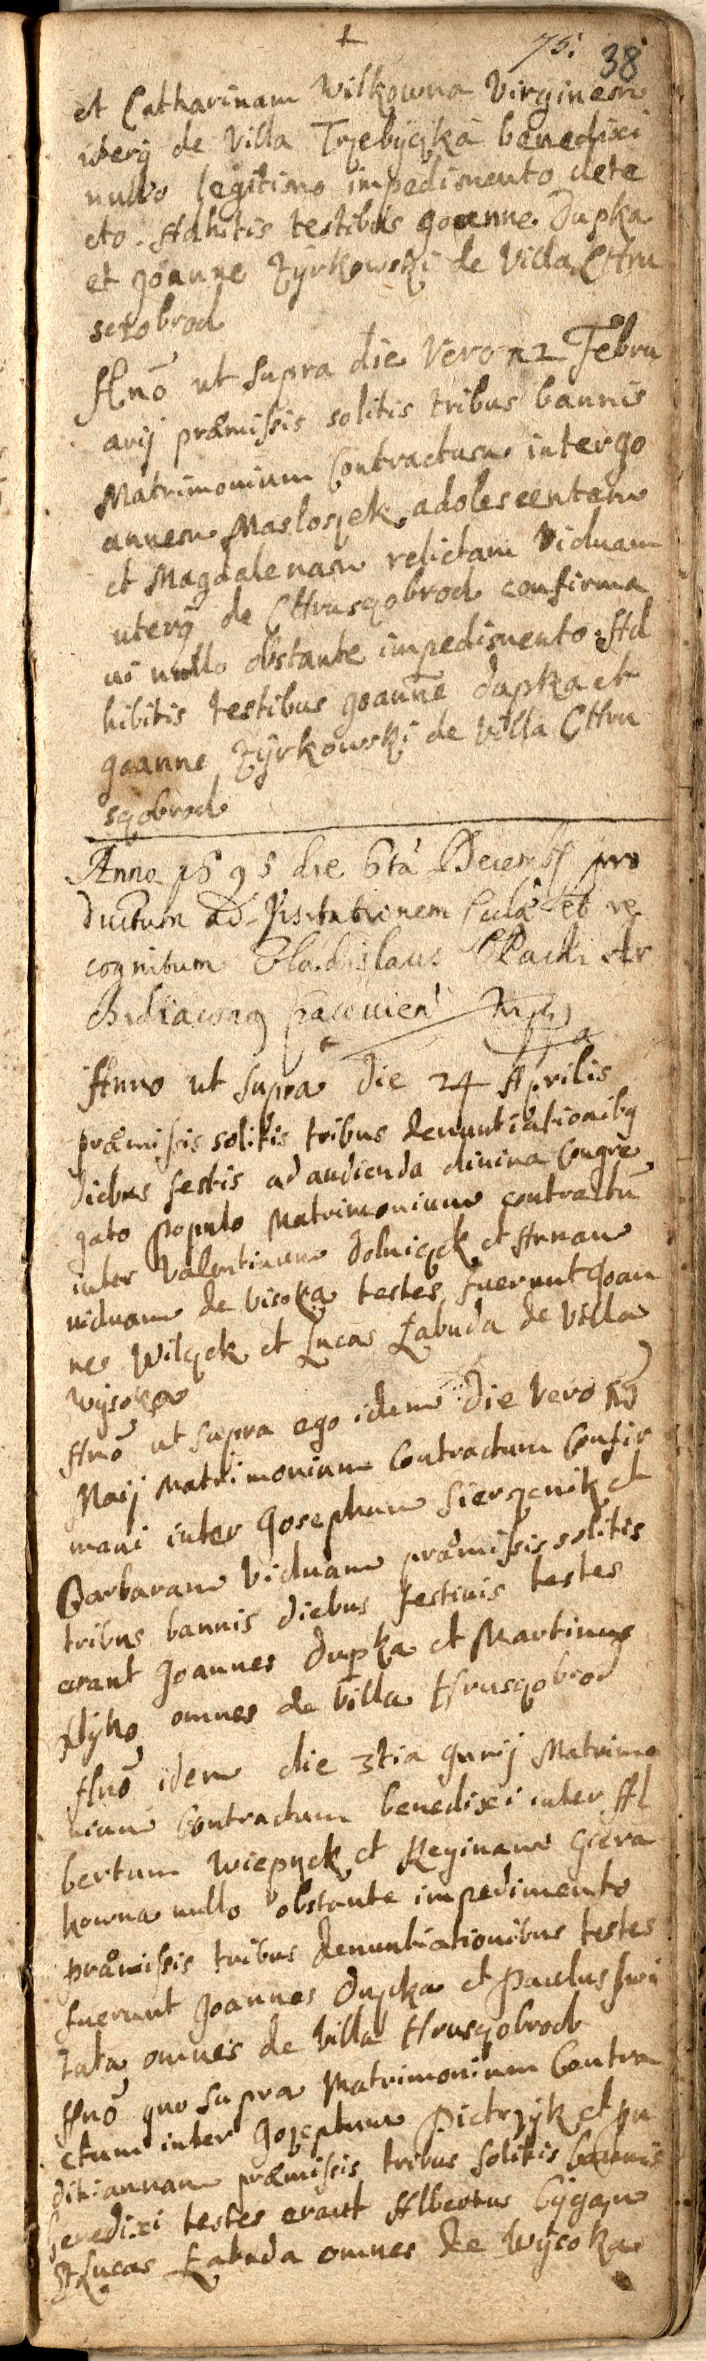 75. 38
et Catharinam Wilkowna Virginem
uterq de Villa Trzebyczka benedixi
nullo legitimo impedimento dete
cto. Adhitis testibus Joanne Dupka
et Joanne Zyrkowski de Villa CHru
sczobrod
Ano ut supra die Vero 12 Febru
arij præmissis solitis tribus bannis
Matrimonium Contractum inter Jo
annem Masloszek adolescentem
et Magdalenam relictam Viduam
uterq de CHrusczobrod confirma
ui nullo obstante impedimento. Ad
hibitis testibus Joanne dupka et
Joanne Zyrkowski de Villa CHru
sczobrod
Anno 1695 die 6ta Decemb pro
ductum ad Visitationem et re
cognitum Vladislaus Ar
chidiaconq Cracouien
Anno ut supra die 24 Aprilis
præmissis solitis tribus denuntiationibq
diebus festis ad audienda diuina Congre
gato populo Matrimonium contractu
inter Valentinum Dolniczek et Annam
viduam de visoka testes fuerunt Joan
nes Wilczek et Lucas Łabuda de Villa
Wysoka
Ano ut supra ego idem die vero
Maij Matrimonium Contractum Confir
maui inter Josephum Sierszenik et
Barbaram Viduam præmissis solitis
tribus bannis diebus festiuis testes
erant Joannes Dupka et Martinus
omnes de villa Hrusczobrod
Ano idem die 3tia Junij Matrimo
nium Contractum benedixi inter Al
bertum Wiepzyck et Reginam Giera
kowna nullo obstante impedimento
præmissis tribus denuntiationibus testes
fuerunt Joannes Dupka et Paulus Swi
tała omnes de Villa Hrusczobrod
Ano quo supra Matrimonium Contra
ctum inter Jozephum Pietrzyk et Ju
dittannam præmissis tribus solitis bannis
benedixi testes erant Albertus Cygan
et Lucas Łabuda omnes de Wysoka